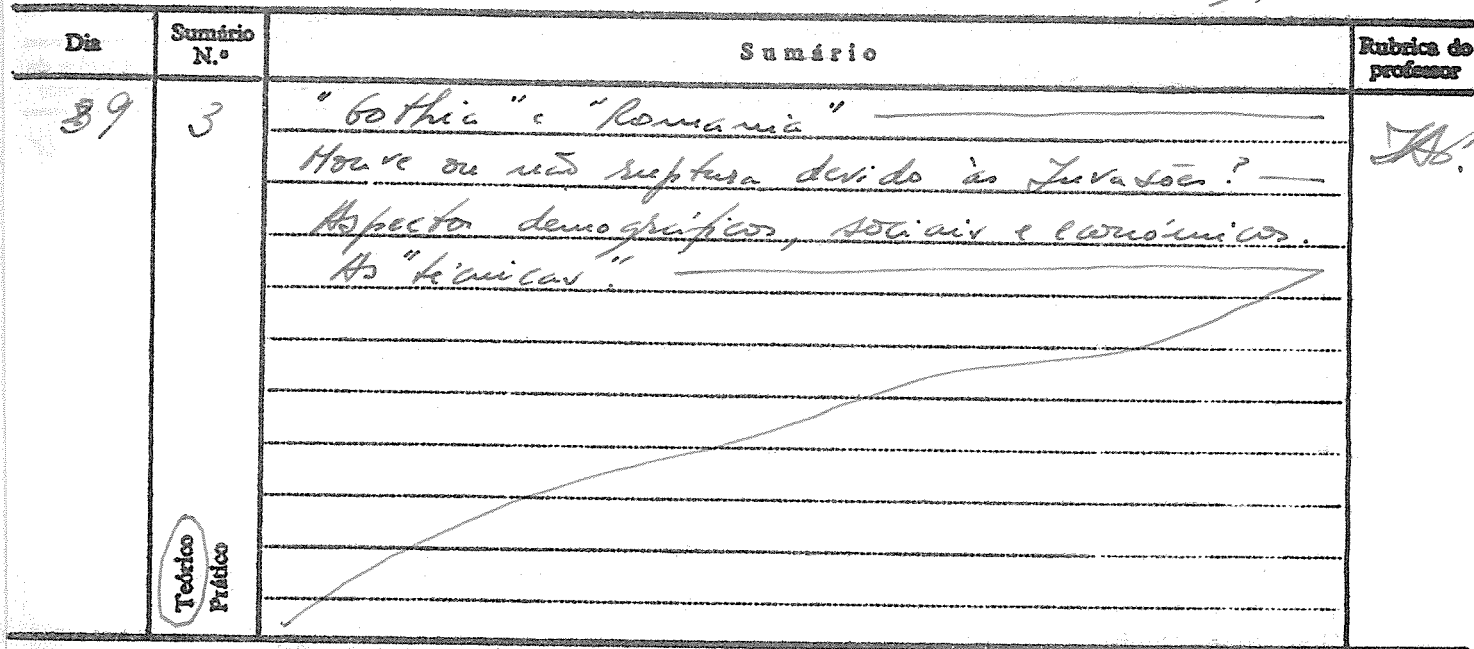 Dia
Sumário N.º
Sumário
Rubrica do professor
3
"Gothia" e "Romania"
Houve ou não ruptura devido às Invasões?
Aspectos demográficos, sociais e económicos.
As "técnicas".
Teórico
Prático